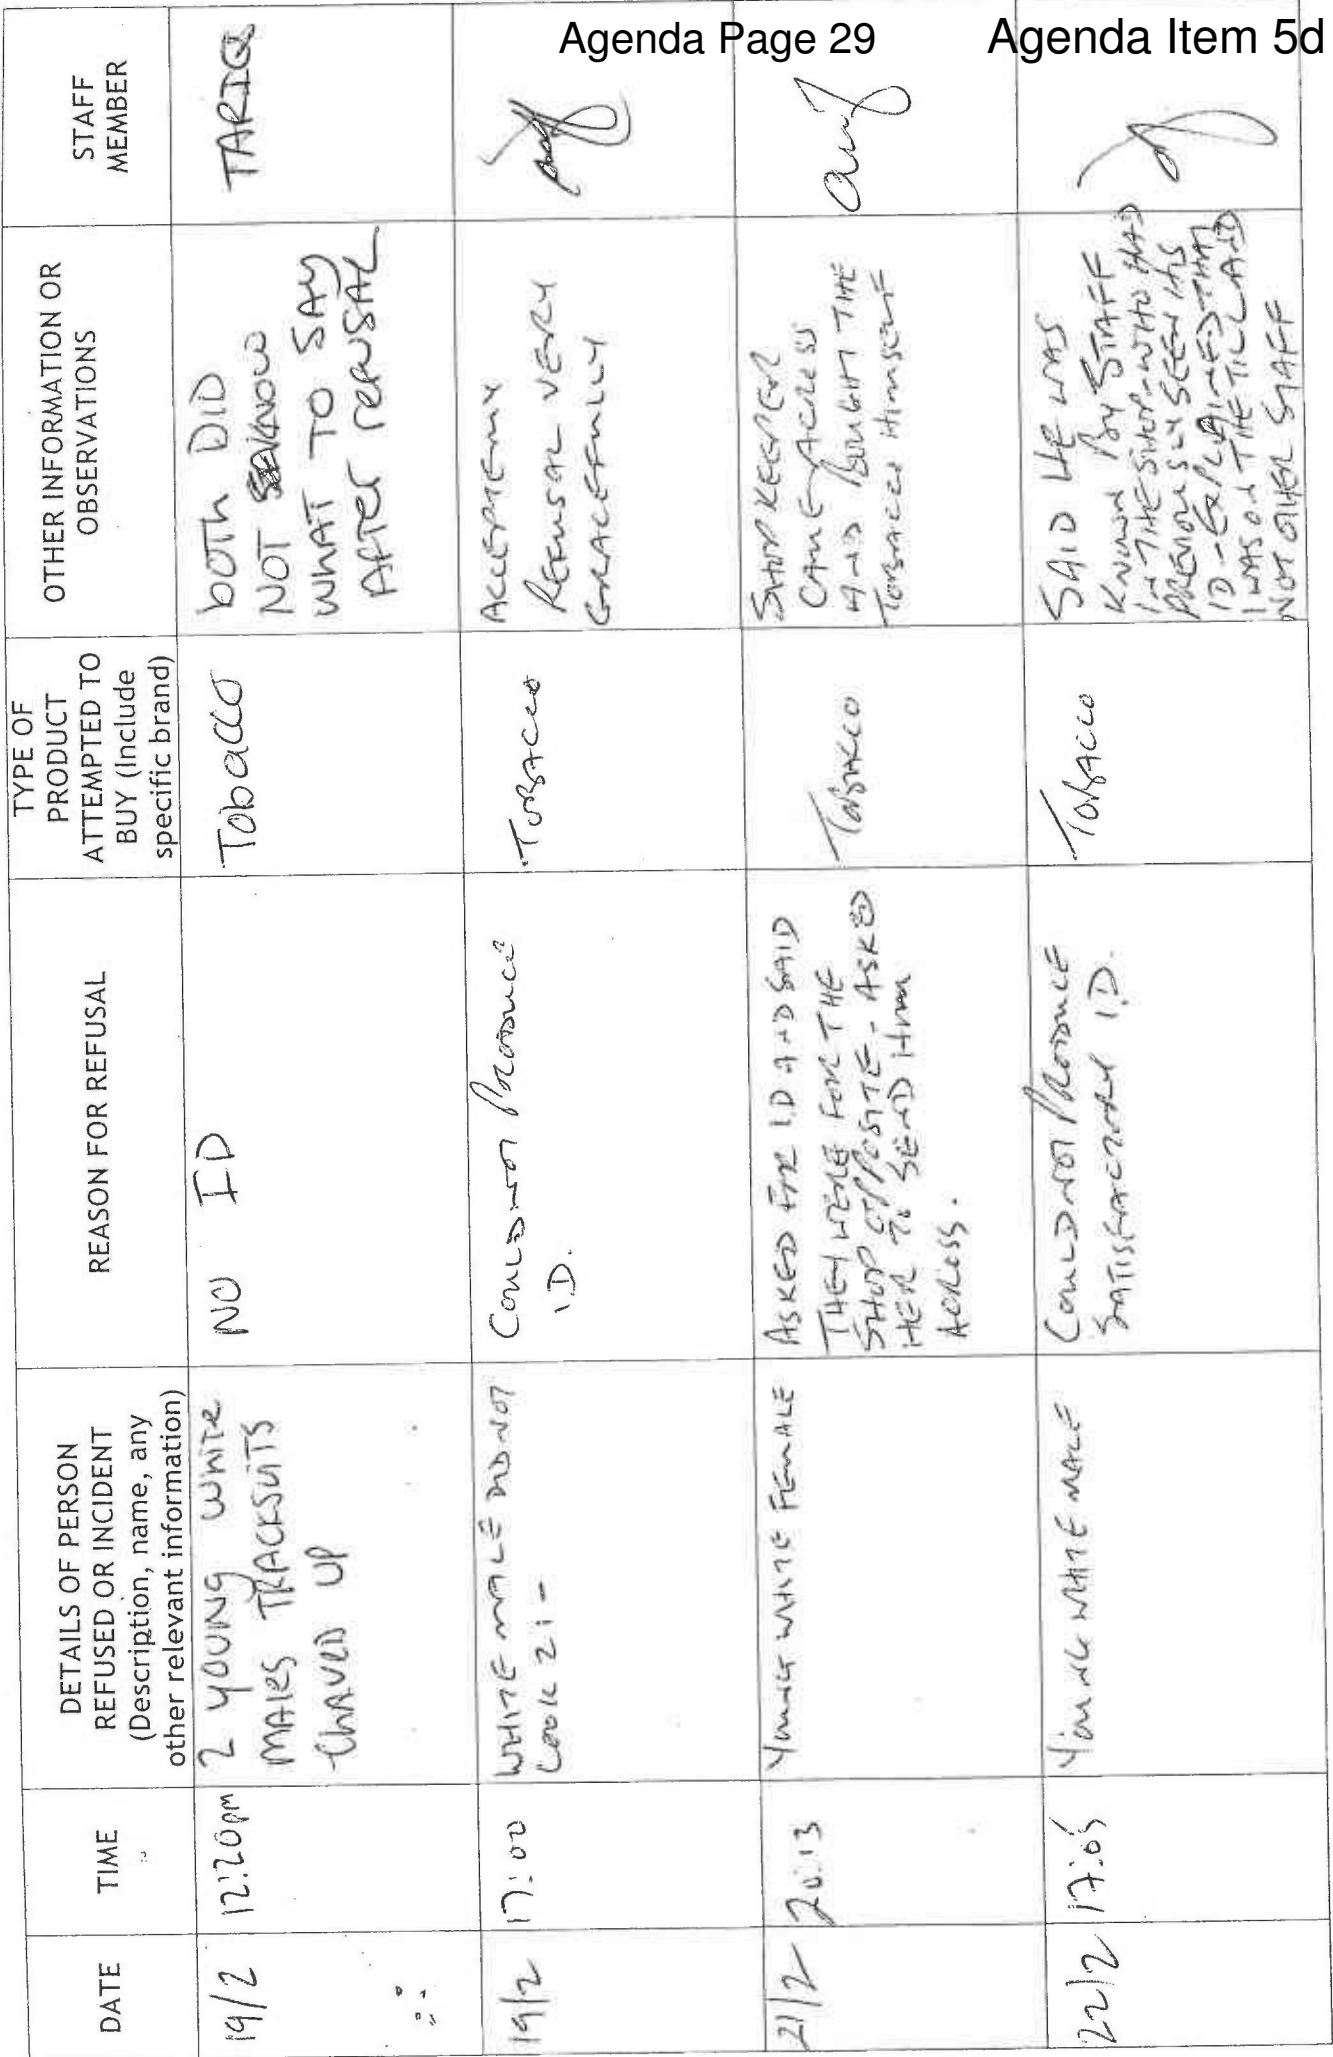 Agenda Page 29
Agenda Item 5d
DATE
TIME
DETAILS OF PERSON
REFUSED OR INCIDENT
(Description, name, any
other relevant information)
REASON FOR REFUSAL
TYPE OF
PRODUCT
ATTEMPTED TO
BUY (Include
specific brand)
OTHER INFORMATION OR
OBSERVATIONS
STAFF
MEMBER
19/2
12:20pm
2 YOUNG WHITE
MALES TRACKSUITS
CHAVED UP
NO ID
Tobacco
BOTH DID
NOT KNOW
WHAT TO SAY
AFTER REFUSAL
TARIQ
19/2
17:00
WHITE MALE DID NOT
LOOK 21 -
COULD NOT PRODUCE
I.D.
TOBACCO
REFUSAL VERY
GRACEFULLY
21/2
20:13
YOUNG WHITE FEMALE
ASKED FOR I.D AND SAID
THEY WERE FOR THE
SHOP OPPOSITE - ASKED
HER TO SEND HIM
ACROSS.
TOBACCO
SHOP KEEPER
CAME ACROSS
AND BOUGHT THE
TOBACCO HIMSELF
22/2
17:05
YOUNG WHITE MALE
COULD NOT PRODUCE
SATISFACTORY I.D.
TOBACCO
SAID HE WAS
KNOWN BY STAFF
IN THE SHOP - WHO HAD
PREVIOUSLY SEEN HIS
ID - EXPLAINED THAT
I WAS ON THE TILL AND
NOT OTHER STAFF